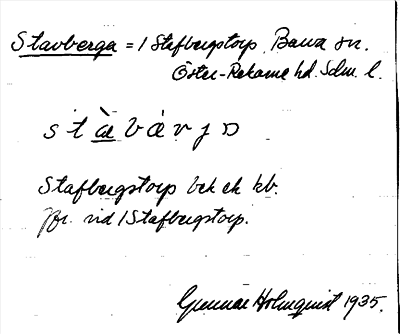 Stavberga = / Stafbergstorp, Barva sn.
Öster-Rekarne hd. Sdm. l.
s t à̱ b á r j ɒ
Stafbergstorp bek ek kb.
Jfr. vid / Stafbergstorp.
Gunnar Holmquist 1935.